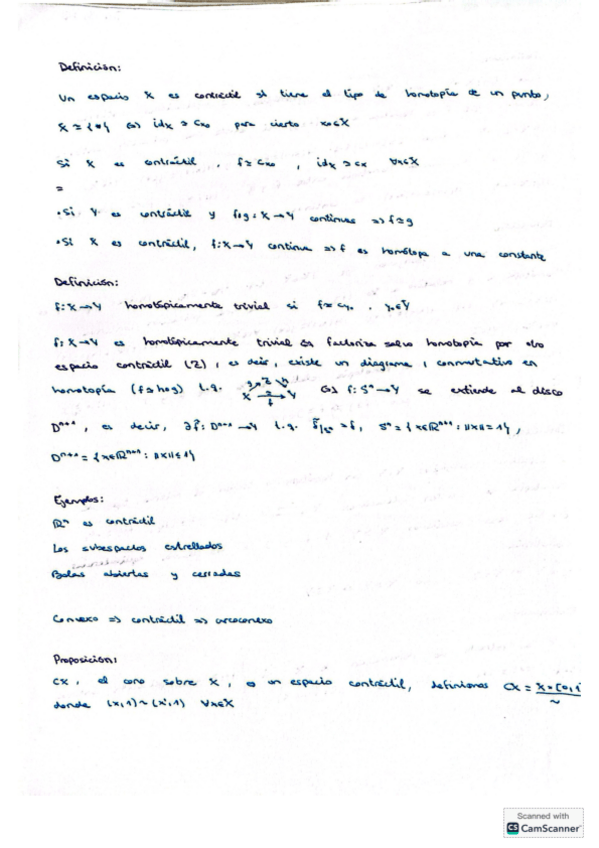 Definición:
Un espacio X es contráctil si tiene el tipo de homotopía de un punto,
X ≃ {*} ⇔ id_X ≃ c_x₀ para cierto x₀∈X
Si X es contráctil, f ≃ c_x₀, id_X ≃ c_x ∀x∈X
=
• Si Y es contráctil y f,g: X→Y continuas ⇒ f≃g
• Si X es contráctil, f: X→Y continua ⇒ f es homótopa a una constante
Definición:
f: X→Y homotópicamente trivial si f≃c_y₀, y₀∈Y
f: X→Y es homotópicamente trivial ⇔ factoriza salvo homotopía por otro
espacio contráctil (Z), es decir, existe un diagrama, conmutativo en
homotopía (f≃h∘g) t.q. X g Z h Y f ⇔ f: Sⁿ→Y se extiende al disco
Dⁿ⁺¹, es decir, ∃f̃: Dⁿ⁺¹→Y t.q. f̃|Sⁿ=f, Sⁿ={x∈ℝⁿ⁺¹: ||x||=1},
Dⁿ⁺¹={x∈ℝⁿ⁺¹: ||x||≤1}
Ejemplos:
ℝⁿ es contráctil
Los subespacios estrellados
Bolas abiertas y cerradas
Convexo ⇒ contráctil ⇒ arcoconexo
Proposición:
CX, el cono sobre X, es un espacio contráctil, definimos CX = X×[0,1
~
donde (x,1)~(x',1) ∀x∈X
Scanned with
CS CamScanner